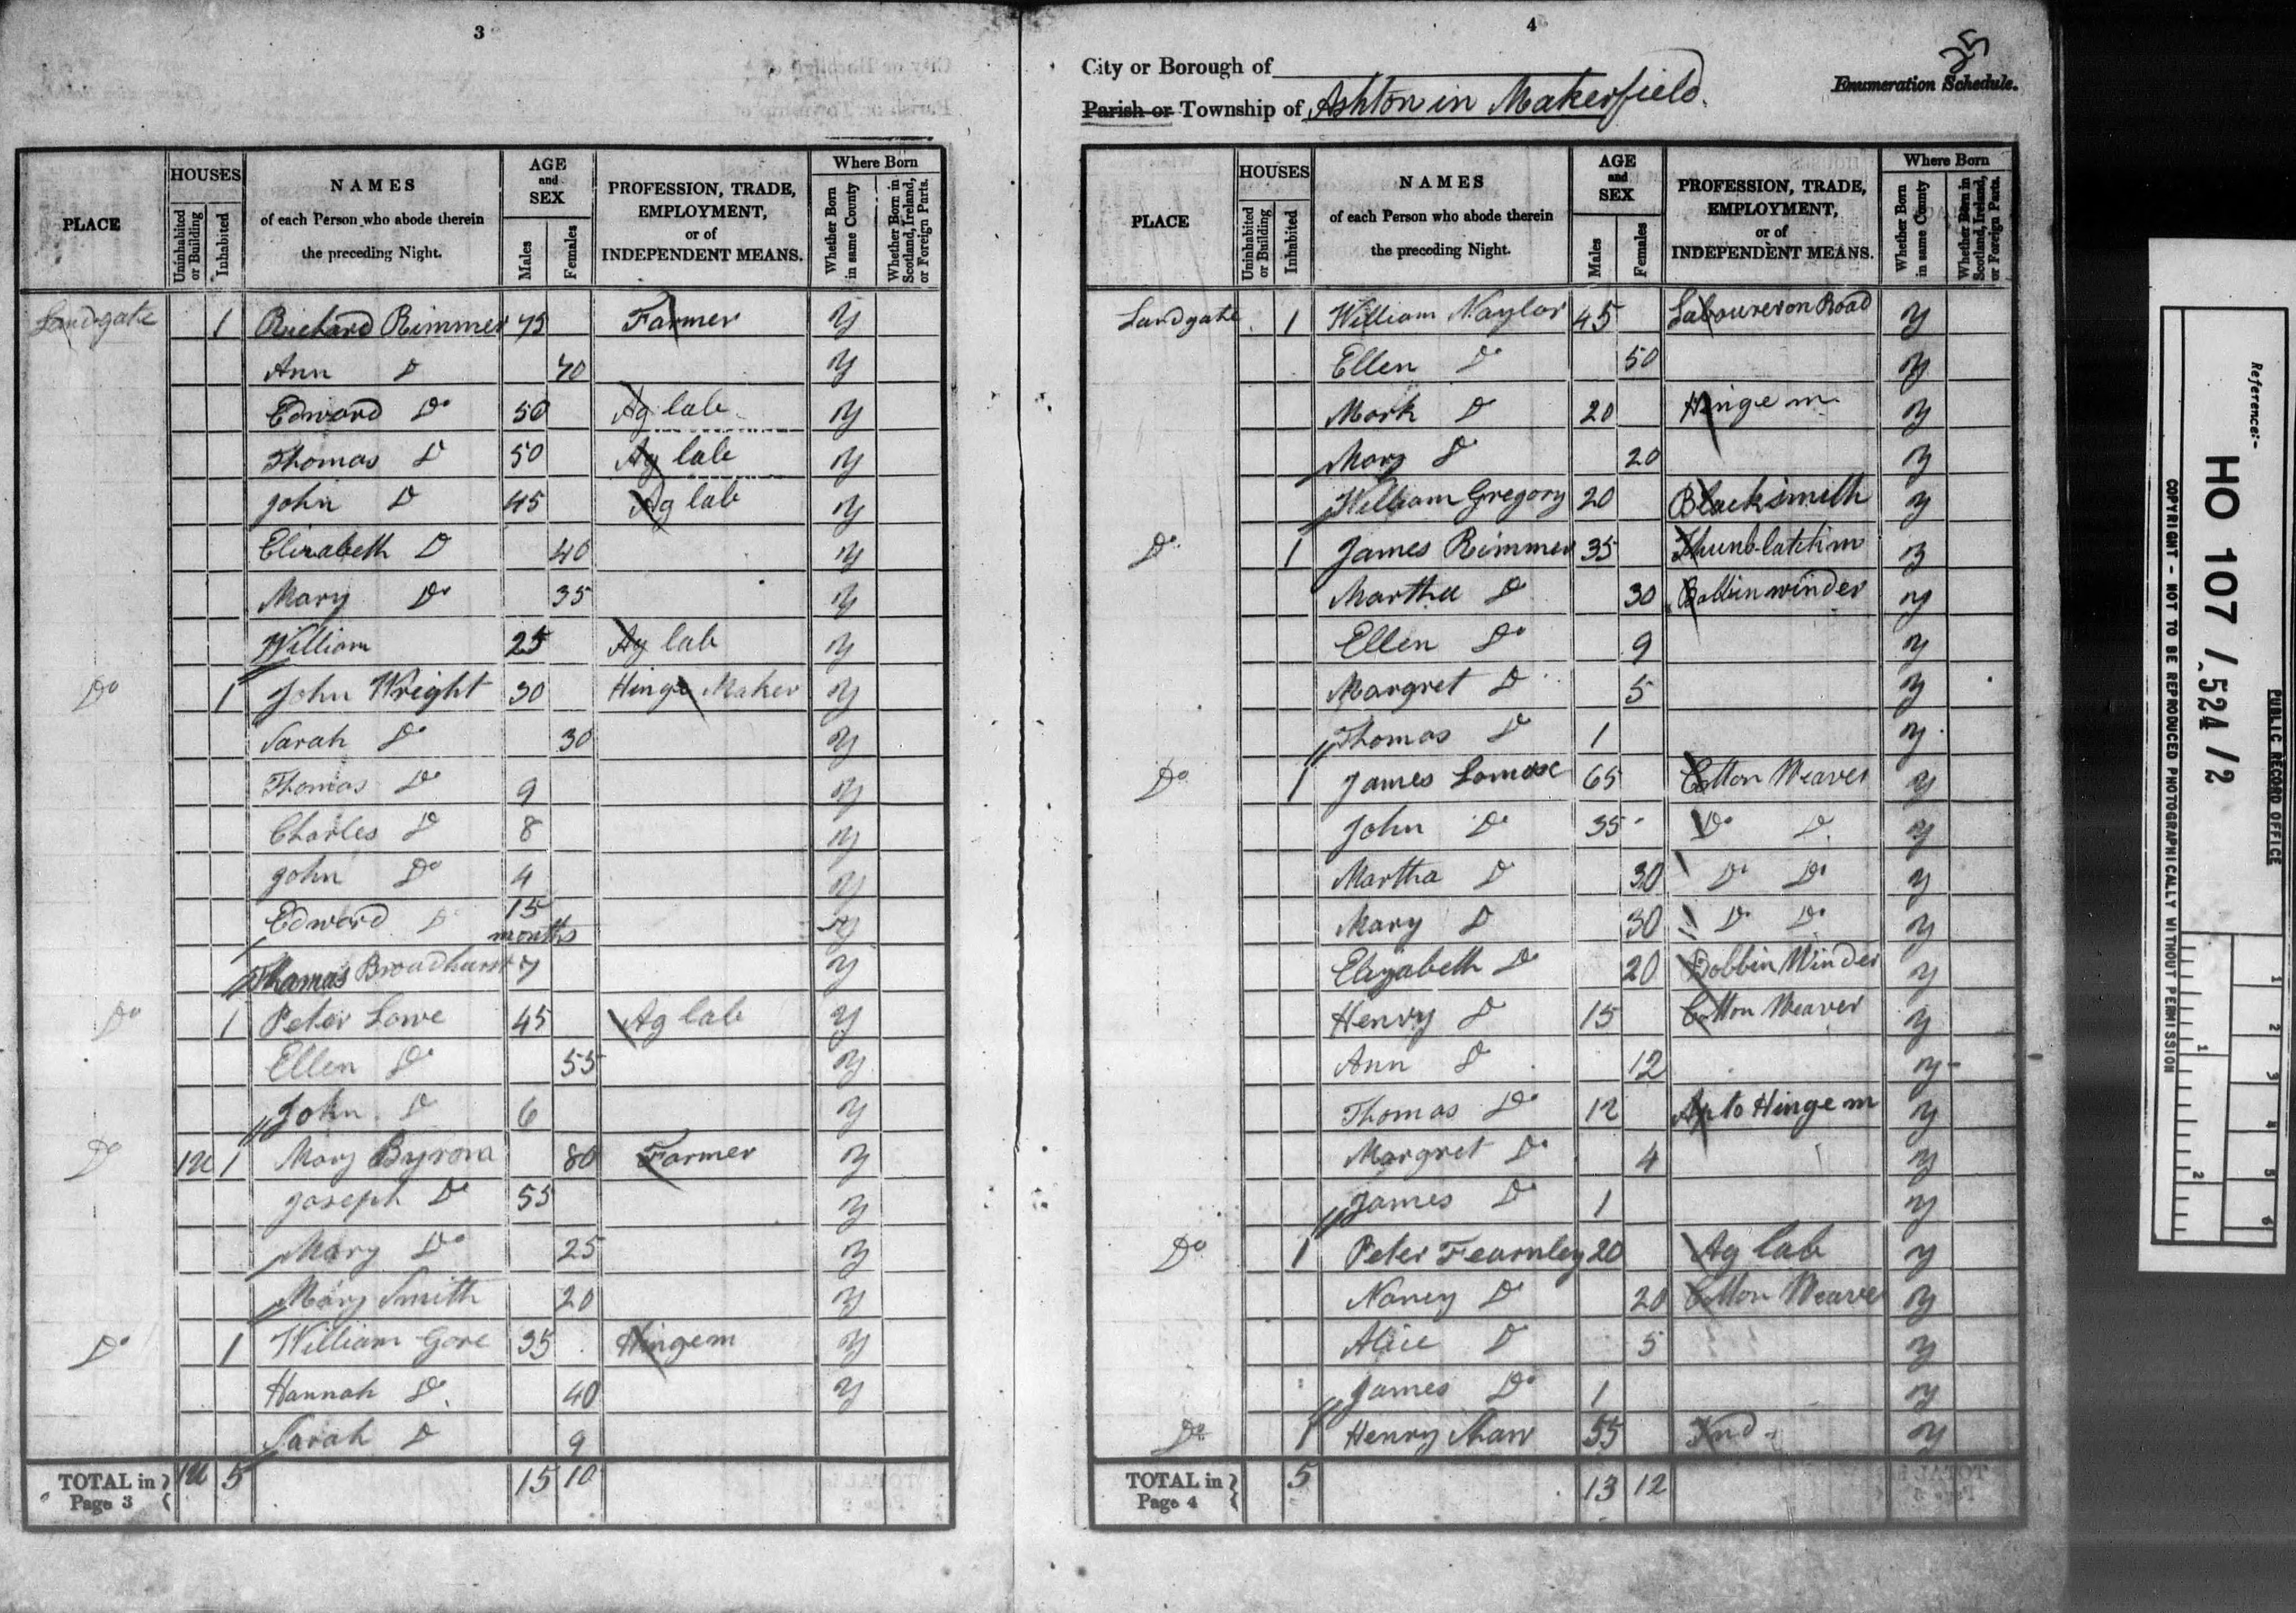 3
PLACE
HOUSES
Uninhabited or Building
Inhabited
NAMES
of each Person who abode therein
the preceding Night.
AGE
and
SEX
Males
Females
PROFESSION, TRADE,
EMPLOYMENT,
or of
INDEPENDENT MEANS.
Where Born
Whether Born in same County
Whether Born in Scotland, Ireland, or Foreign Parts.
Landgate 1 Richard Rimmer 75 Farmer y
Ann Do 70 y
Edward Do 50 Ag lab y
Thomas Do 50 Ag lab y
John Do 45 Ag lab y
Elizabeth Do 40 y
Mary Do 35 y
William 25 Ag lab y
Do 1 John Wright 30 Hinge Maker y
Sarah Do 30 y
Thomas Do 9 y
Charles Do 8 y
John Do 4 y
Edward Do 15 months y
Thomas Broadhurst 7 y
Do 1 Peter Lowe 45 Ag lab y
Ellen Do 55 y
John Do 6 y
Do 1U 1 Mary Byrom 80 Farmer y
Joseph Do 55 y
Mary Do 25 y
Mary Smith 20 y
Do 1 William Gore 35 Hinge m y
Hannah Do 40 y
Sarah Do 9
TOTAL in Page 3 1U 5 15 10
4
City or Borough of
Parish or Township of Ashton in Makerfield.
25
Enumeration Schedule.
PLACE
HOUSES
Uninhabited or Building
Inhabited
NAMES
of each Person who abode therein
the preceding Night.
AGE
and
SEX
Males
Females
PROFESSION, TRADE,
EMPLOYMENT,
or of
INDEPENDENT MEANS.
Where Born
Whether Born in same County
Whether Born in Scotland, Ireland, or Foreign Parts.
Landgate 1 William Naylor 45 Labourer on Road y
Ellen Do 50 y
Mark Do 20 Hinge m y
Mary Do 20 y
William Gregory 20 Blacksmith y
Do 1 James Rimmer 35 Thumb latch m y
Martha Do 30 Bobbin winder y
Ellen Do 9 y
Margret Do 5 y
Thomas Do 1 y
Do 1 James 65 Cotton Weaver y
John Do 35 Do Do y
Martha Do 30 Do Do y
Mary Do 30 Do Do y
Elizabeth Do 20 Bobbin Winder y
Henry Do 15 Cotton Weaver y
Ann Do 12 y
Thomas Do 12 Ap to Hinge m y
Margret Do 4 y
James Do 1 y
Do 1 Peter Fearnley 20 Ag lab y
Nancy Do 20 Cotton Weaver y
Alice Do 5 y
James Do 1 y
Do 1 Henry Shaw 55 Ind y
TOTAL in Page 4 5 13 12
PUBLIC RECORD OFFICE
Reference:-
HO 107 / 524 / 2
COPYRIGHT - NOT TO BE REPRODUCED PHOTOGRAPHICALLY WITHOUT PERMISSION
1 2 3 4 5 6
1 2